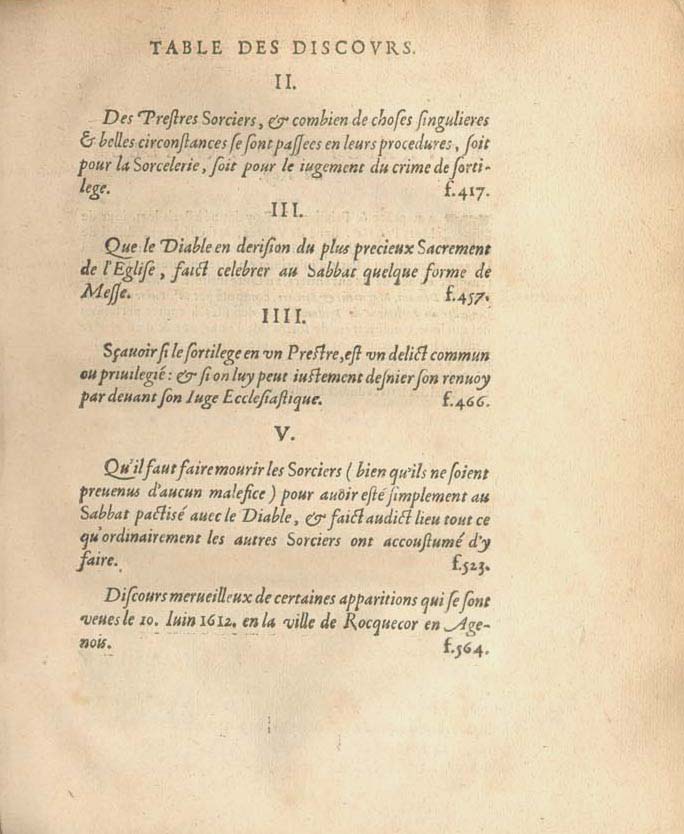 TABLE DES DISCOVRS.
II.
Des Preſtres Sorciers, & combien de choſes ſingulieres
& belles circonſtances ſe ſont paſſees en leurs procedures, ſoit
pour la Sorcelerie, ſoit pour le iugement du crime de ſorti-
lege. f.417.
III.
Que le Diable en deriſion du plus precieux Sacrement
de l'Egliſe, faict celebrer au Sabbat quelque forme de
Meſſe. f.457.
IIII.
Sçauoir ſi le ſortilege en vn Preſtre, eſt vn delict commun
ou priuilegié: & ſi on luy peut iuſtement deſnier ſon renuoy
par deuant ſon Iuge Eccleſiaſtique. f.466.
V.
Qu'il faut faire mourir les Sorciers (bien qu'ils ne ſoient
preuenus d'aucun malefice) pour auoir eſté ſimplement au
Sabbat pactisé auec le Diable, & faict audict lieu tout ce
qu'ordinairement les autres Sorciers ont accouſtumé d'y
faire. f.523.
Diſcours merueilleux de certaines apparitions qui ſe ſont
veues le 10. Iuin 1612. en la ville de Rocquecor en Age-
nois. f.564.